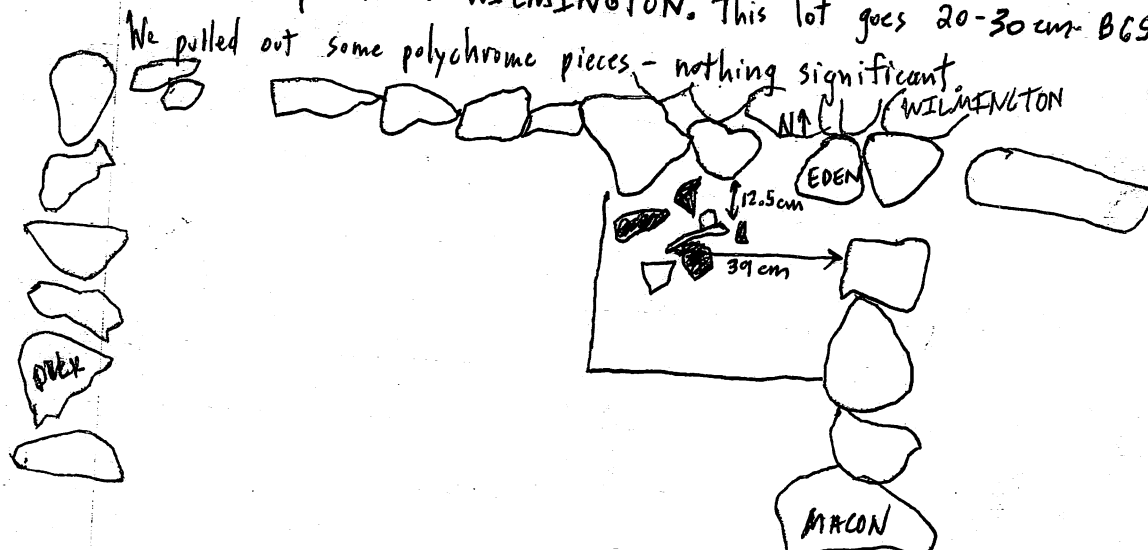 WILMINGTON. This lot goes 20-30 cm BGS
We pulled out some polychrome pieces - nothing significant.
N↑
WILMINGTON
EDEN
12.5cm
39 cm
MACON